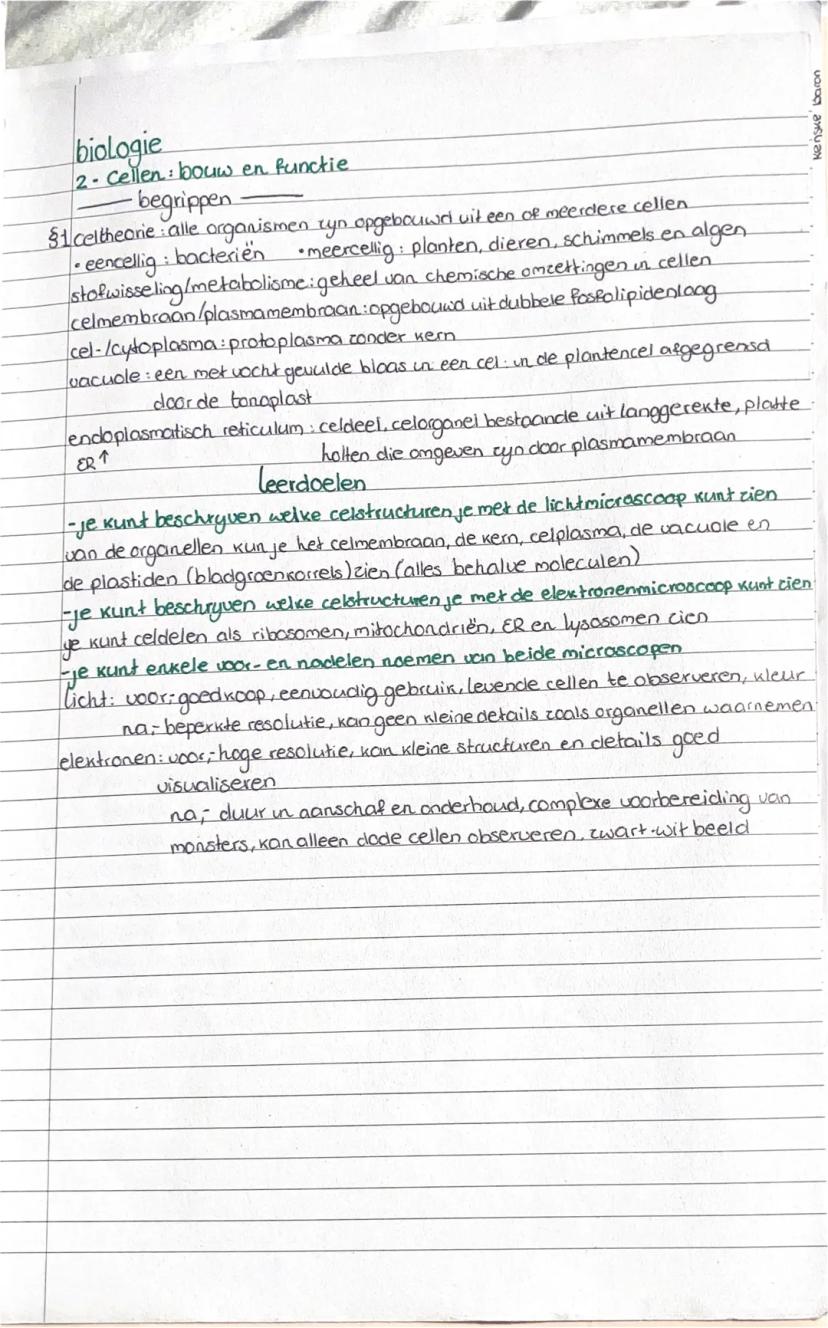 biologie
2 - cellen: bouw en functie
begrippen
§1 celtheorie: alle organismen zyn opgebouwd uit een of meerdere cellen
• eencellig: bacteriën • meercellig: planten, dieren, schimmels en algen
stofwisseling/metabolisme: geheel van chemische omzettingen in cellen
celmembraan/plasmamembraan: opgebouwd uit dubbele fosfolipidenlaag
cel-/cytoplasma: protoplasma zonder kern
vacuole: een met vocht gevulde blaas in een cel: in de plantencel afgegrensd
door de tonoplast
endoplasmatisch reticulum: celdeel, celorganel bestaande uit langgerekte, platte
ER ↑ holten die omgeven zyn door plasmamembraan
leerdoelen
- je kunt beschryven welke celstructuren je met de lichtmicroscoop kunt zien
van de organellen kun je het celmembraan, de kern, celplasma, de vacuole en
de plastiden (bladgroenkorrels) zien (alles behalve moleculen)
- je kunt beschryven welke celstructuren je met de elektronenmicroscoop kunt zien
je kunt celdelen als ribosomen, mitochondriën, ER en lysosomen zien
- je kunt enkele voor- en nadelen noemen van beide microscopen
licht: voor;- goedkoop, eenvoudig gebruik, levende cellen te observeren, kleur
na;- beperkte resolutie, kan geen kleine details zoals organellen waarnemen
elektronen: voor;- hoge resolutie, kan kleine structuren en details goed
visualiseren
na;- duur in aanschaf en onderhoud, complexe voorbereiding van
monsters, kan alleen dode cellen observeren, zwart-wit beeld